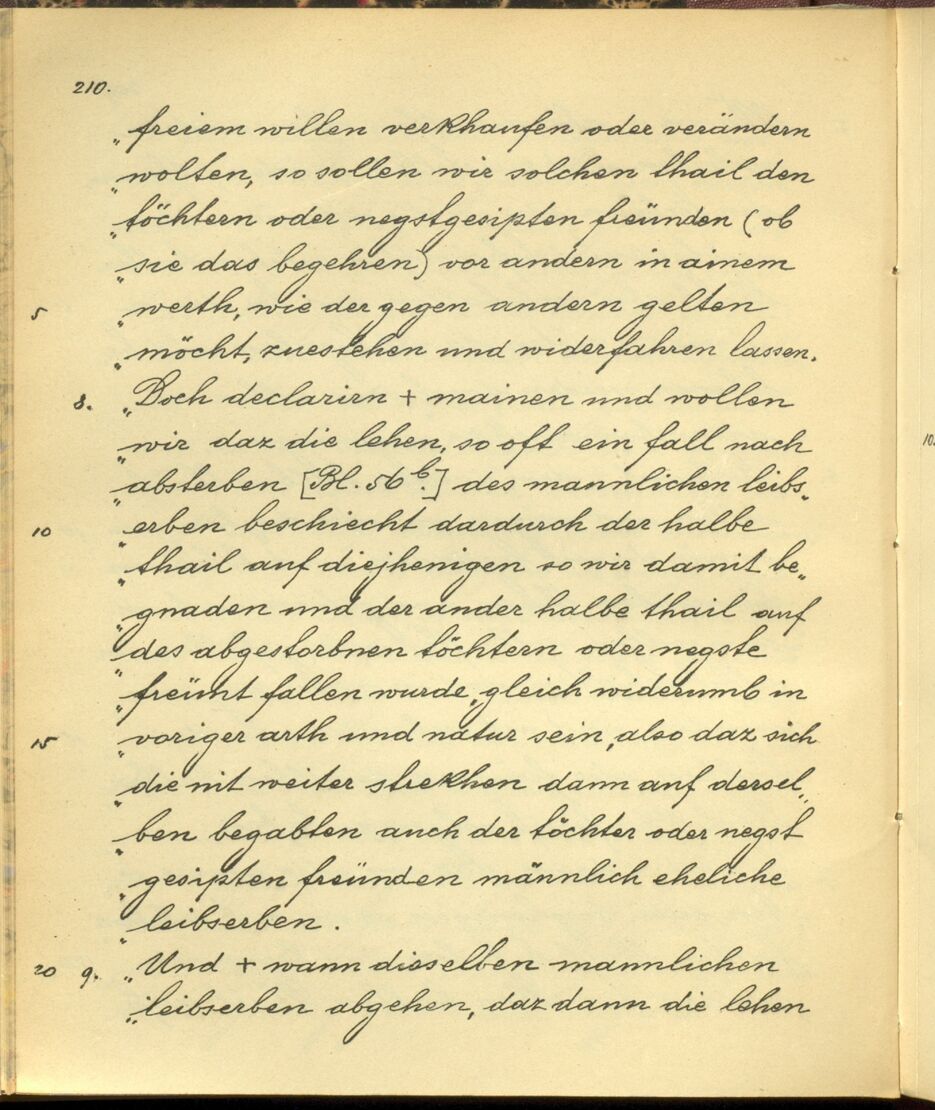 210.
„freiem willen verkhaufen oder verändern
„wolten, so sollen wir solchen thail den
„töchtern oder negstgesipten freünden (ob
„sie das begehren) vor andern in ainem
5 „werth, wie der gegen andern gelten
„möcht, zuestehen und widerfahren lassen.
8. „Doch declarirn + mainen und wollen
„wir daz die lehen, so oft ein fall nach
„absterben [Bl. 56b.] des mannlichen leibs„
10 „erben beschiecht dardurch der halbe
„thail auf diejhenigen so wir damit be„
„gnaden und der ander halbe thail auf
„des abgestorbnen töchtern oder negste
„freünt fallen wurde, gleich widerumb in
15 „voriger arth und natur sein, also daz sich
„die nit weiter strekhen dann auf dersel„
„ben begabten auch der töchter oder negst
„gesipten freünden männlich eheliche
„leibserben.
20 9. „Und + wann dieselben mannlichen
„leibserben abgehen, daz dann die lehen
10.